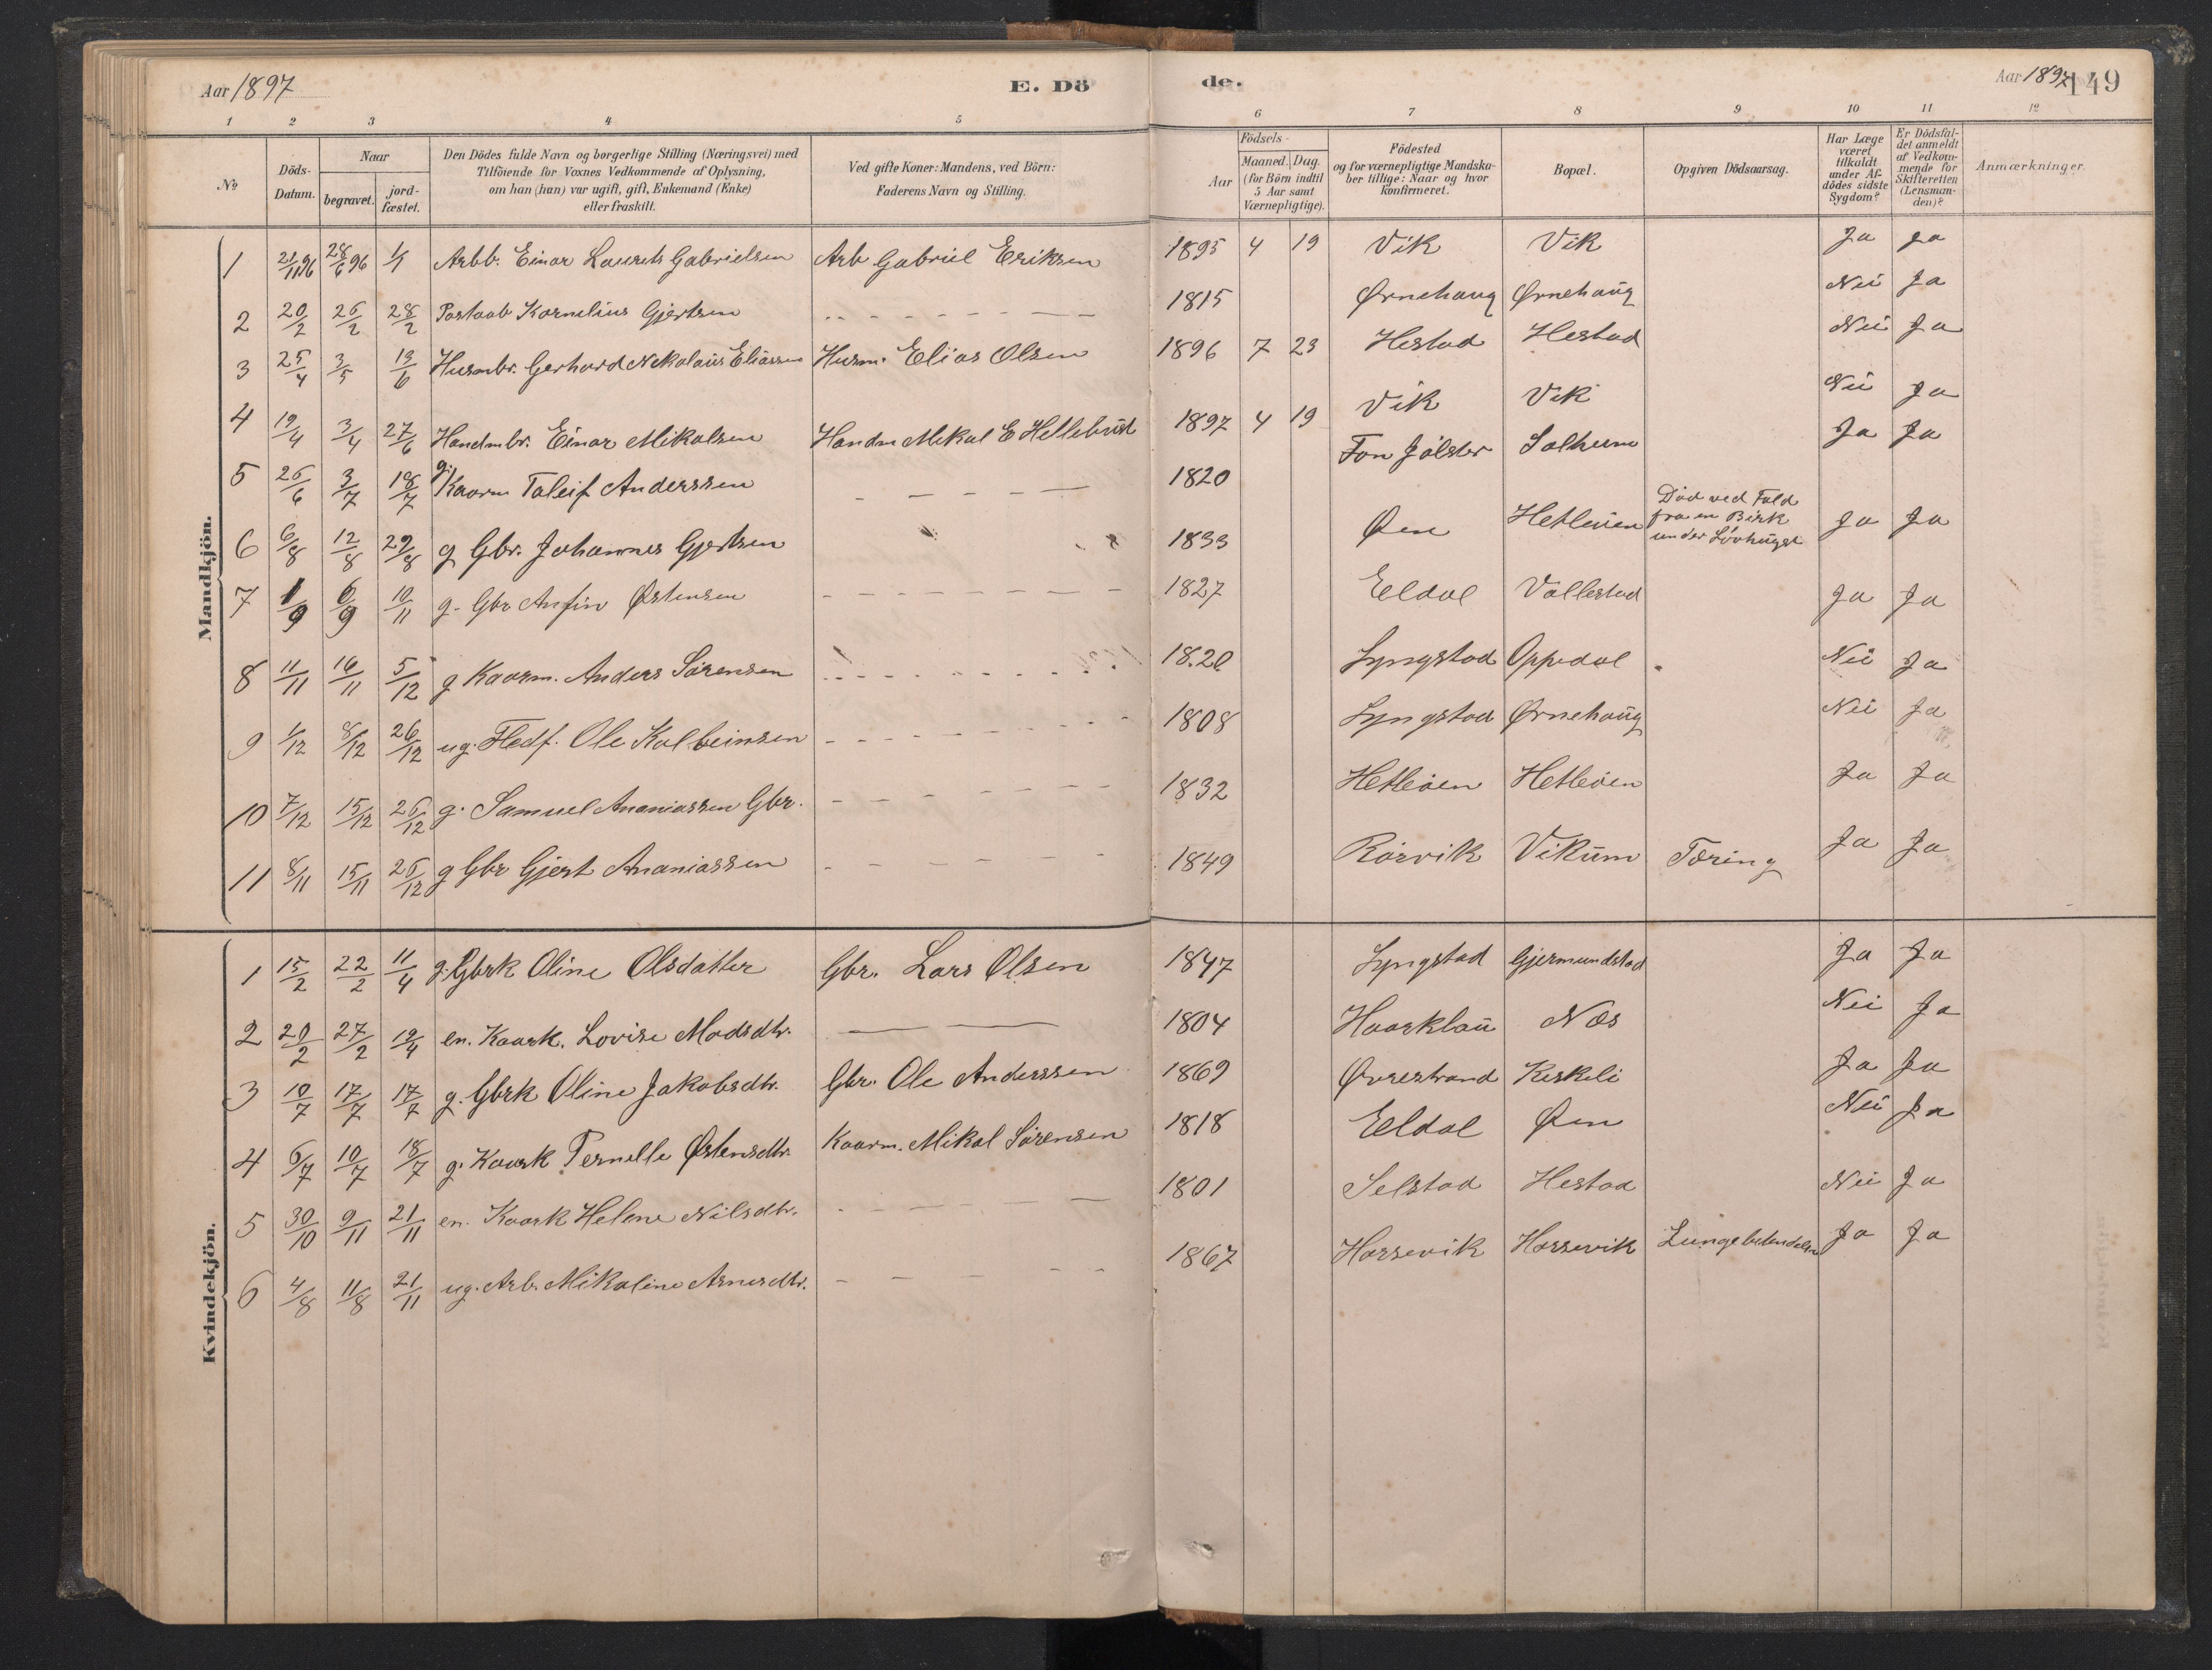 Aar 1897 E. Dö de. Aar 1897 149
1 2 3 4 5 6 7 8 9 10 11 12
№ Döds-Datum. Naar begravet. jord-fæstet. Den Dödes fulde Navn og borgerlige Stilling (Næringsvei) med Tilföiende for Voxnes Vedkommende af Oplysning, om han (hun) var ugift, gift, Enkemand (Enke) eller fraskilt. Ved gifte Koner: Mandens, ved Börn: Faderens Navn og Stilling. Födsels- Aar Maaned. Dag. (for Börn indtil 5 Aar samt Værnepligtige). Födested og for værnepligtige Mandskaber tillige: Naar og hvor konfirmeret. Bopæl. Opgiven Dödsaarsag. Har Læge været tilkaldt under Afdödes sidste Sygdom? Er Dödsfaldet anmeldt af Vedkommende for Skifteretten (Lensmanden)? Anmærkninger.
Mandkjön.
1 21/11 96 28/6 96 1/1 Arbb. Einar Laurets Gabrielsen Arb Gabriel Eriksen 1895 4 19 Vik Vik Ja ja
2 20/2 26/2 28/2 Postaab Kornelius Gjertsen 1815 Ørnehaug Ørnehaug Nei Ja
3 25/4 3/5 13/6 Husmbr. Gerhard Nikolaus Eliassen Husm. Elias Olsen 1896 7 23 Hestad Hestad Nei Ja
4 19/4 3/4 27/6 Handmbr. Einar Mikalsen Handm Mikal E Hellebust 1897 4 19 Vik Vik Nei Ja
5 26/6 3/7 18/7 g. Kaarm Toleif Anderssen 1820 Fon Jølster Solheim Ja Ja
6 6/8 12/8 29/8 g Gbr. Johannes Gjertsen 1833 Øen Hetleøen Død ved Fald fra en Birk under Løvhugst Ja Ja
7 1/9 6/9 10/11 g. Gbr Anfin Østensen 1827 Eldal Vallestad Ja Ja
8 11/11 16/11 5/12 g Kaarm. Anders Sørensen 1820 Lyngstad Oppedal Nei Ja
9 1/12 8/12 26/12 ug. Fledf. Ole Kolbeinsen 1808 Lyngstad Ørnehaug Nei Ja
10 7/12 15/12 26/12 g. Samuel Ananiassen Gbr. 1832 Hetleøen Hetleøen Ja Ja
11 8/11 15/11 26/12 g Gbr Gjert Ananiassen 1849 Rørvik Vikum Tæring Ja Ja
Kvindekjön.
1 15/2 22/2 11/4 g. Gbrk Oline Olsdatter Gbr. Lars Olsen 1847 Lyngstad Gjermundstad Ja Ja
2 20/2 27/2 19/4 en. Kaark. Lovise Madsdtr. 1804 Haarklau Næs Nei Ja
3 10/7 17/7 17/7 g. Gbrk Oline Jakobsdtr. Gbr. Ole Anderssen 1869 Øvrestrand Keskeli Ja Ja
4 6/7 10/7 18/7 g. Kaark Pernelle Østensdtr. Kaarm. Mikal Sørensen 1818 Eldal Øen Nei Ja
5 30/10 9/11 21/11 en. Kaark Helene Nilsdtr. 1801 Selstad Hestad Nei Ja
6 4/8 11/8 21/11 ug. Arb. Mikaline Arnesdtr. 1867 Horsevik Horsevik Lungebetændelse Ja Ja